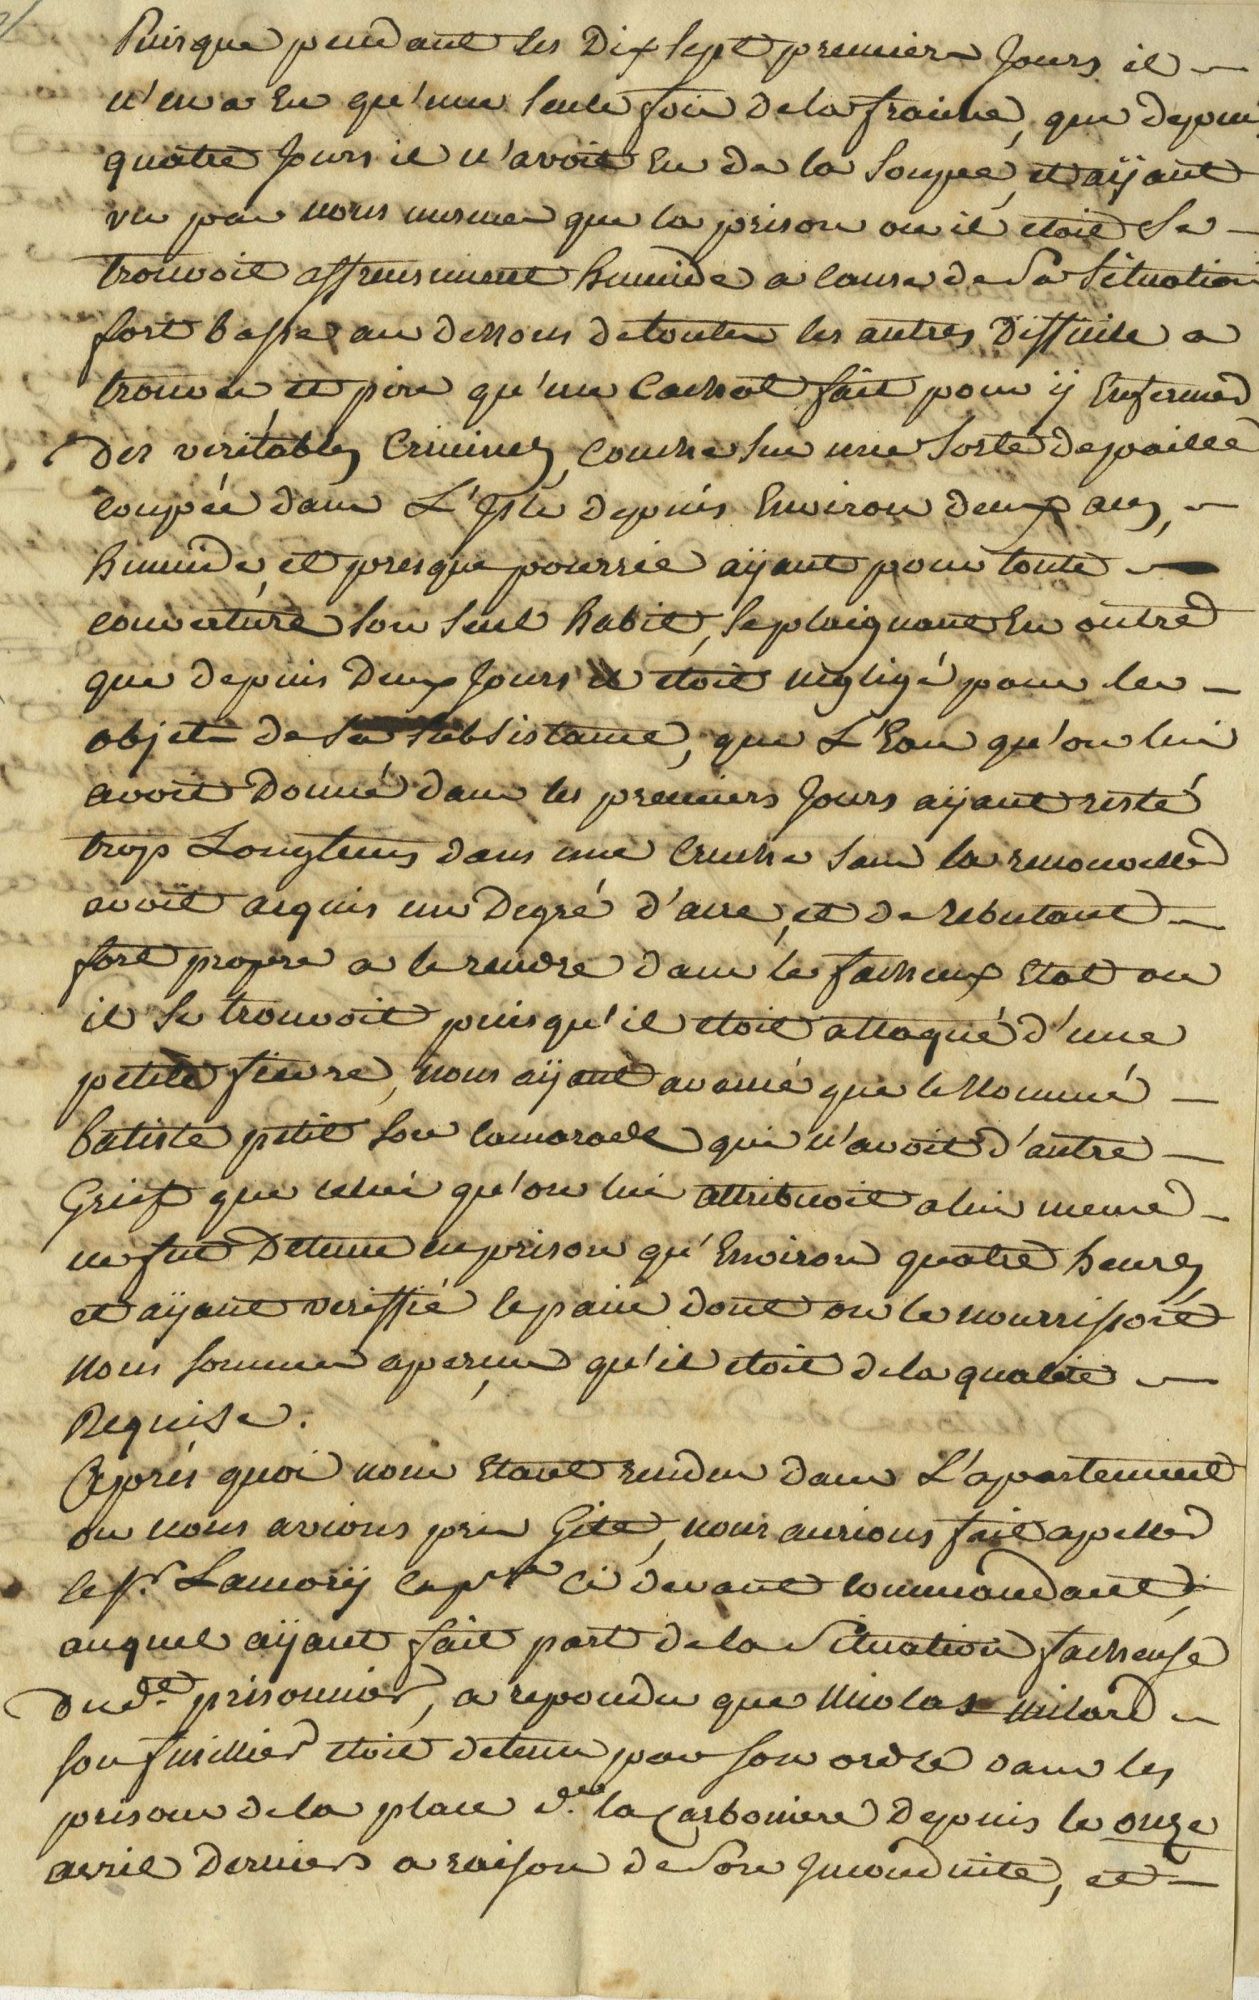 Puisque pendant les Dix sept premiers Jours il
n'en a Eu qu'une seule fois de la fraiche, que depuis
quatre Jours il n'avoit Eu de la Soupe, et aÿant
vu par nous mesmes que la prison ou il etoit Se
trouvoit affreusement humide a cause de Sa Situation
fort basse au dessous de toutes les autres Difficile a
trouver, et pire qu'un Cachot fait pour ÿ Enfermer
Des veritables Criminels, Couché sur une Sorte de paille
coupée dans L'Isle depuis Environ deux ans,
humide, et presque pourrie aÿant pour toute
couverture Son Seul habit, Se plaignant En outre
que depuis Deux Jours il etoit negligé pour les
objets de Sa Subsistance, que L'Eau qu'on lui
avoit Donné dans les premiers Jours aÿant resté
trop Longtems dans une Cruche Sans la renouveller
avoit acquis un Degré d'acre, et de rebutant
fort propre a le rendre dans le facheux Etat ou
il Se trouvoit puisqu'il etoit attaqué d'une
petite fievre, nous aÿant avancé que le Nommé
batiste petit Son camarade qui n'avoit d'autre
Grief que celui qu'on lui attribuoit a lui meme
ne fut Detenu en prison qu'Environ quatre heures,
et aÿant veriffié le pain dont on le nourrissoit
Nous Sommes aperçus qu'il etoit de la qualité
Requise.
Aprés quoi nous Etant rendus dans L'apartement
ou nous avions pris Gite, nous aurions fait apeller
le Sr. Lamorÿ Capne Ci devant commandant,
auquel aÿant fait part de la Situation facheuse
du de. prisonnier, a repondu que Nicolas Milard
Son fusillier etoit detenu par Son ordre dans les
prisons de la place de la Carboniere Depuis le onze
avril Dernier a raison de Son Inconduite, et